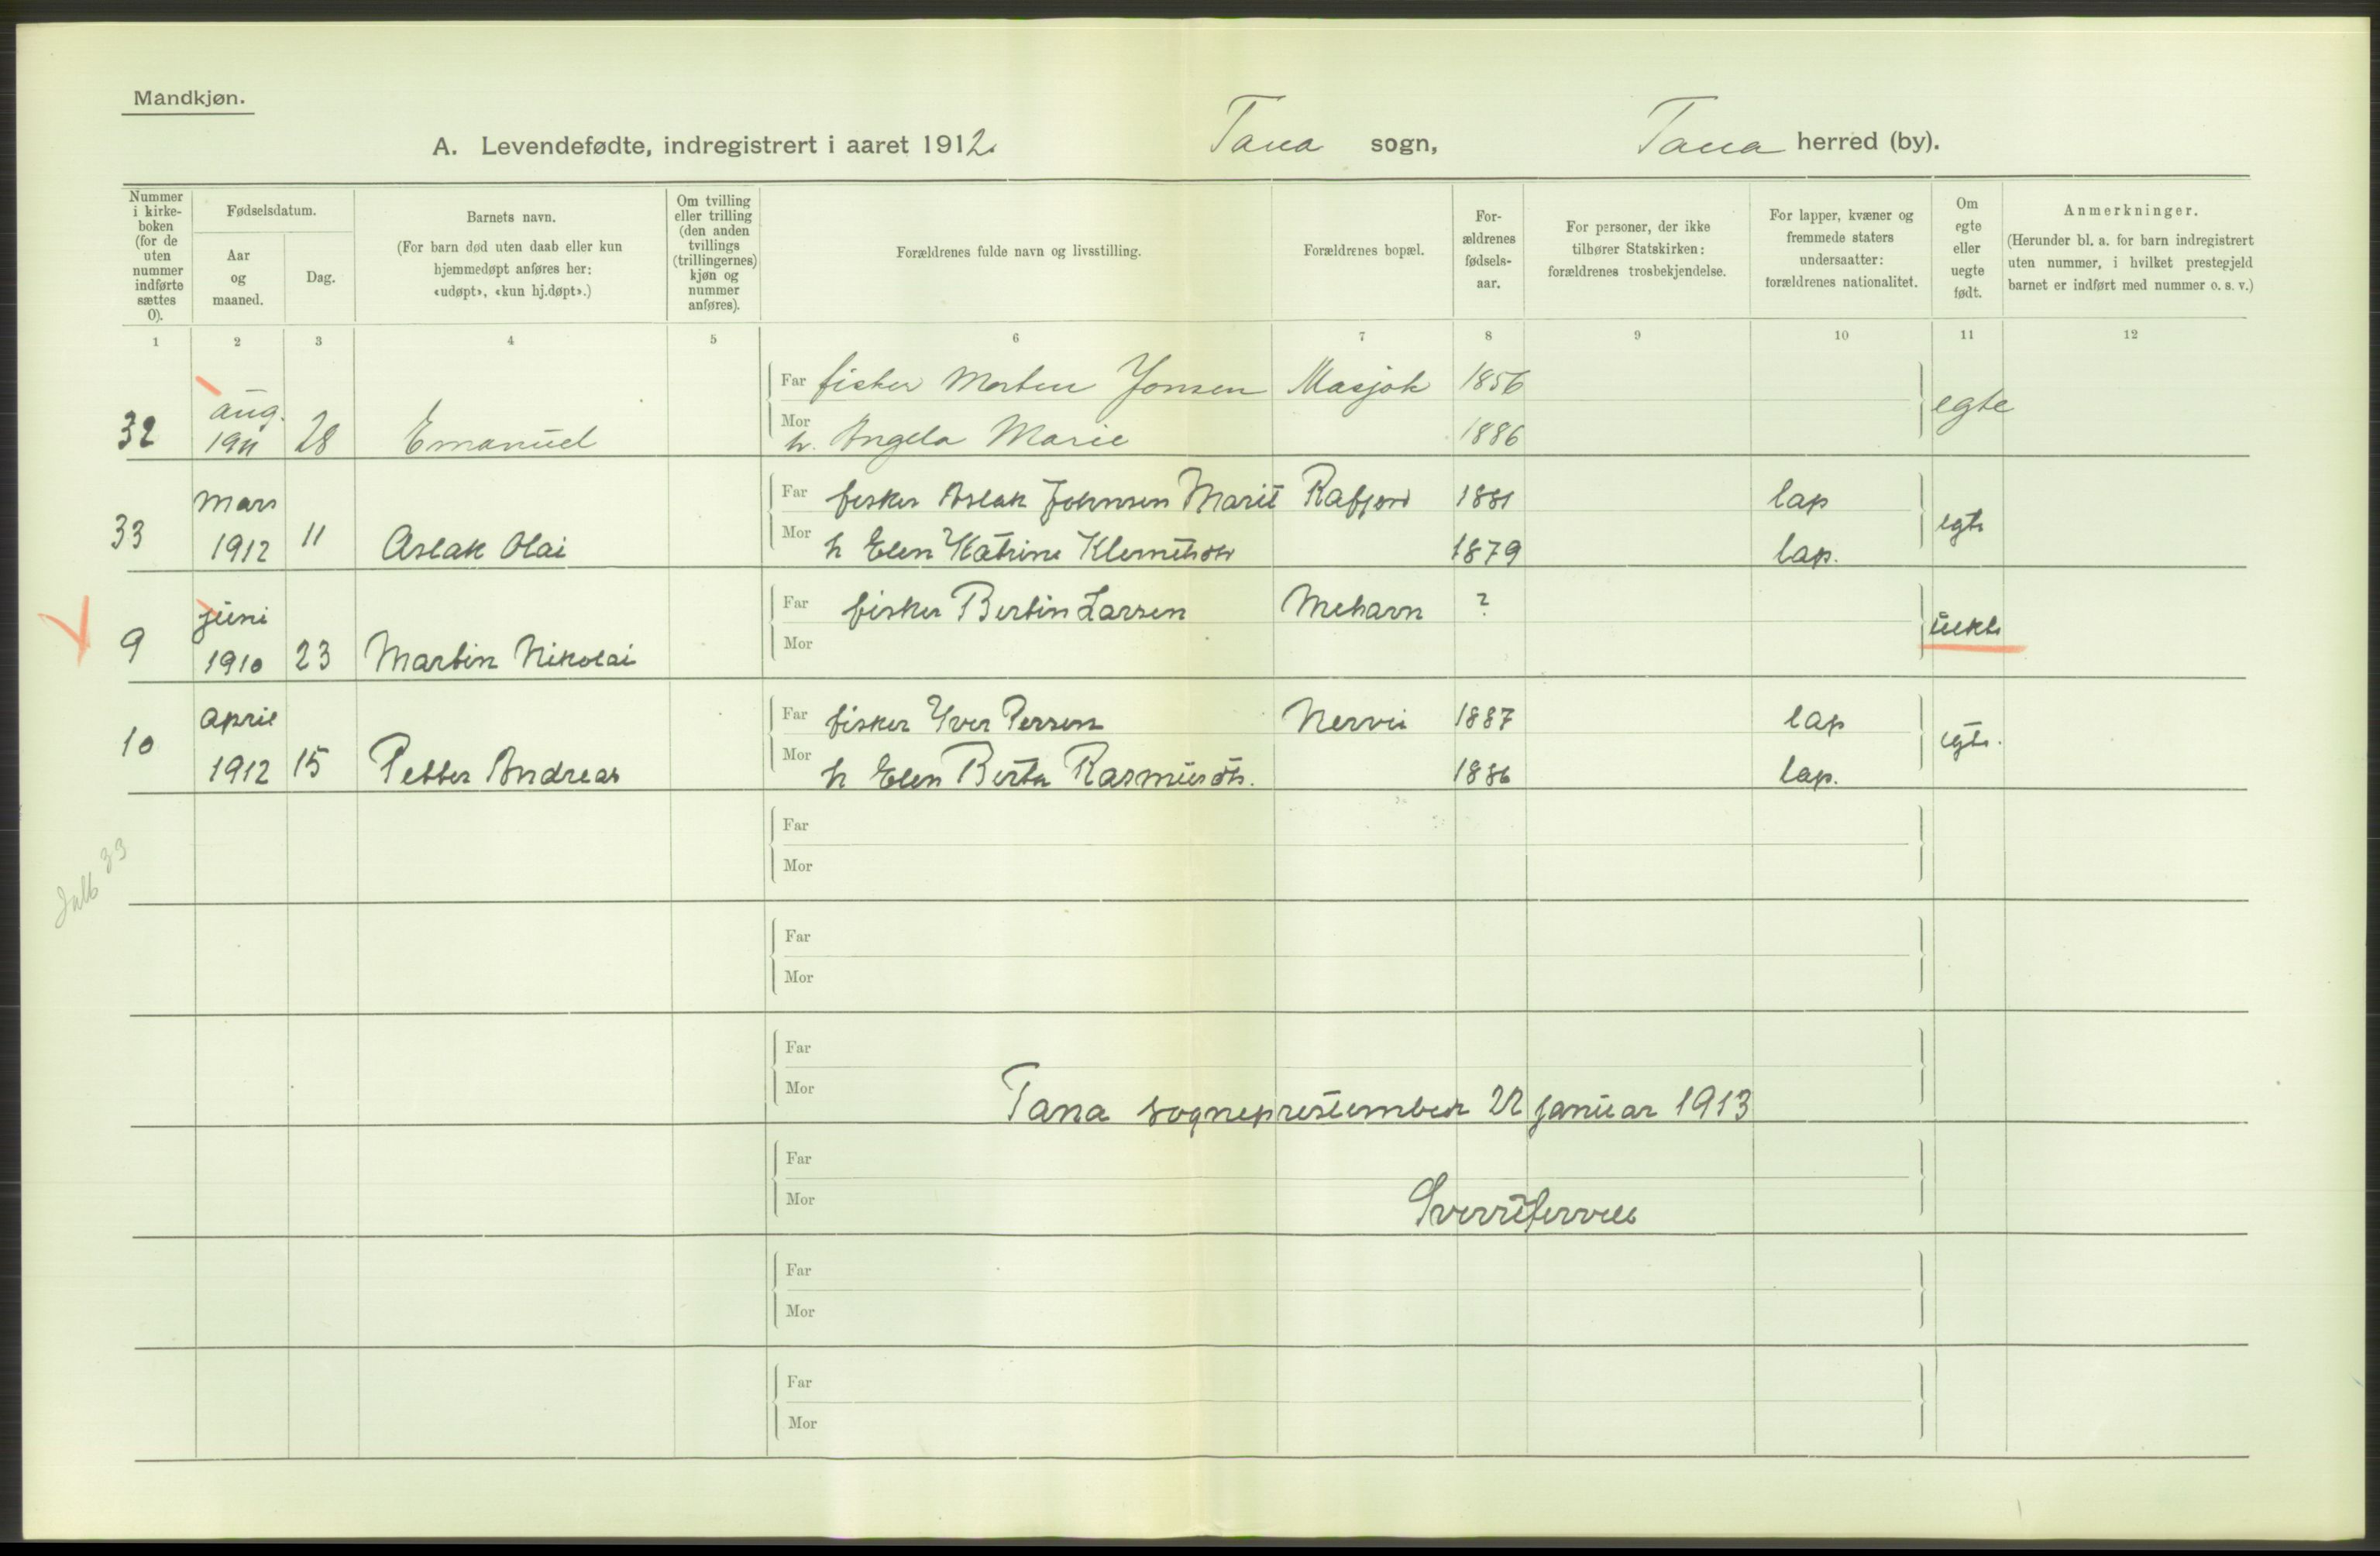 Mandkjøn.
A. Levendefødte, indregistrert i aaret 1912. Tana sogn, Tana herred (by).
Nummer i kirke-boken (for de uten nummer indførte sættes 0).
Fødselsdatum.
Aar og maaned.
Dag.
Barnets navn.
(For barn død uten daab eller kun hjemmedøpt anføres her: «udøpt», «kun hj.døpt».)
Om tvilling eller trilling (den anden tvillings (trillingernes) kjøn og nummer anføres).
Forældrenes fulde navn og livsstilling.
Forældrenes bopæl.
For-ældrenes fødsels-aar.
For personer, der ikke tilhører Statskirken: forældrenes trosbekjendelse.
For lapper, kvæner og fremmede staters undersaatter: forældrenes nationalitet.
Om egte eller uegte født.
Anmerkninger.
(Herunder bl. a. for barn indregistrert uten nummer, i hvilket prestegjeld barnet er indført med nummer o. s. v.)
1 2 3 4 5 6 7 8 9 10 11 12
Far fisker Morten Jonsen Masjok 1856
32 aug. 1911 28 Emanuel egte
Mor h. Angela Marie 1886
Far fisker Aslak Johnsen Marit Rafjord 1881 lap
33 mars 1912 11 Aslak Olai egte
Mor h Elen Katrine Klemetsdtr 1879 lap.
Far fisker Bertin Larsen Mehavn ?
9 juni 1910 23 Martin Nikolai uekte
Mor
Far fisker Yver Persen Nervei 1887 lap
10 april 1912 15 Petter Andreas egte.
Mor h Elen Berta Rasmusdtr. 1886 lap.
Far
Mor
33
Far
Mor
Far
Mor
Tana sogneprestembed 22 januar 1913
Far
Mor
Far
Mor
Far
Mor